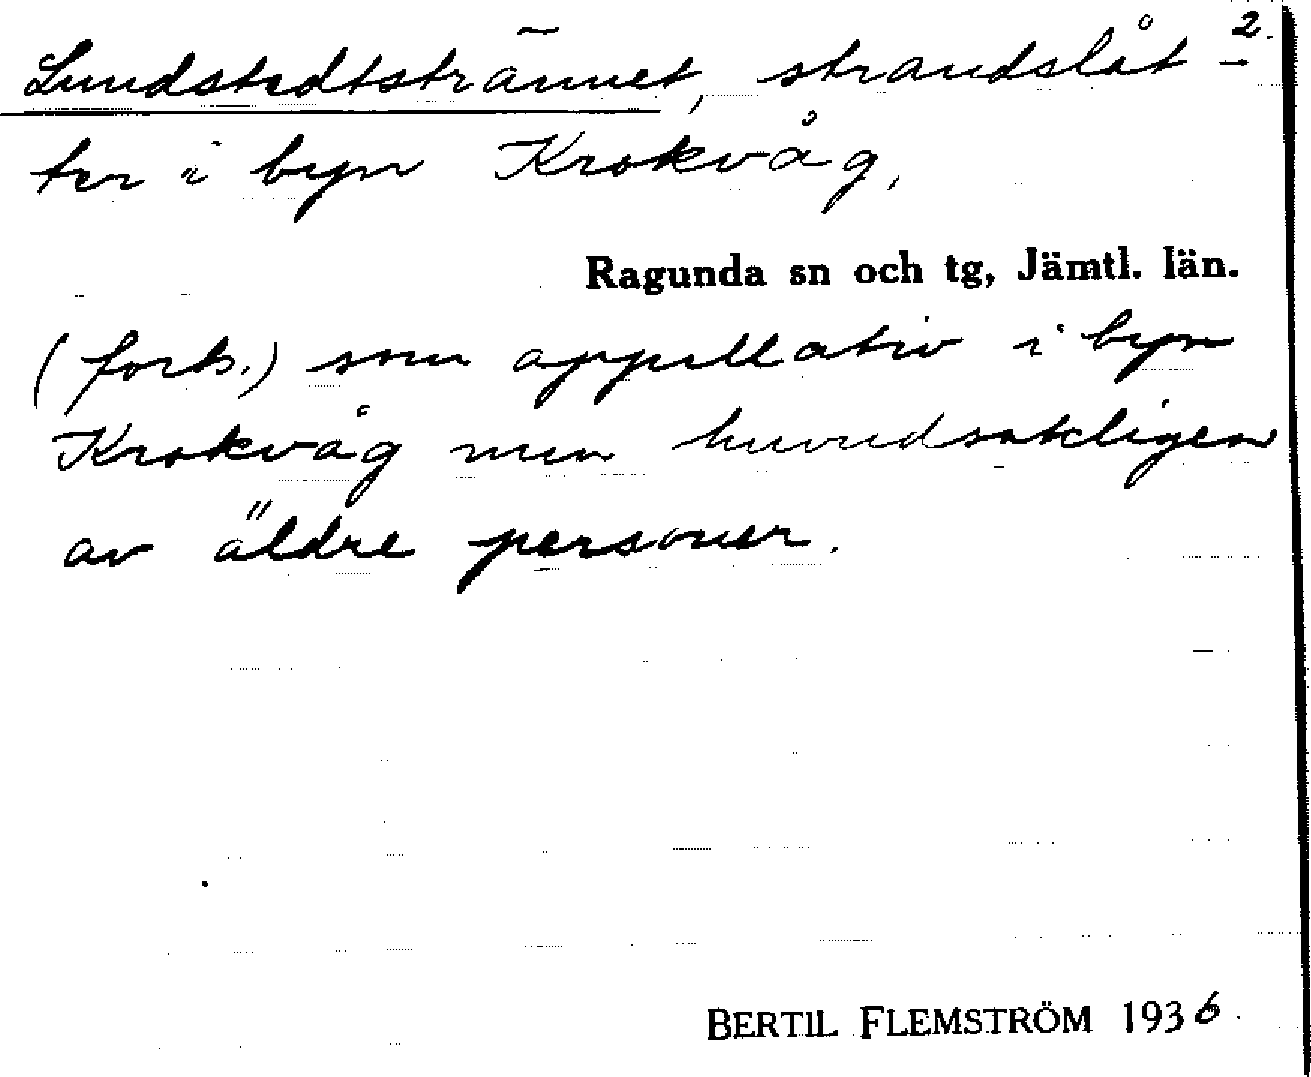 2.
Lundstedtstrännet, strandslåt-
ter i byn Krokvåg,
Ragunda sn och tg, Jämtl. län.
(forts.) som appellativ i byn
Krokvåg men huvudsakligen
av äldre personer.
BERTIL FLEMSTRÖM 1936.